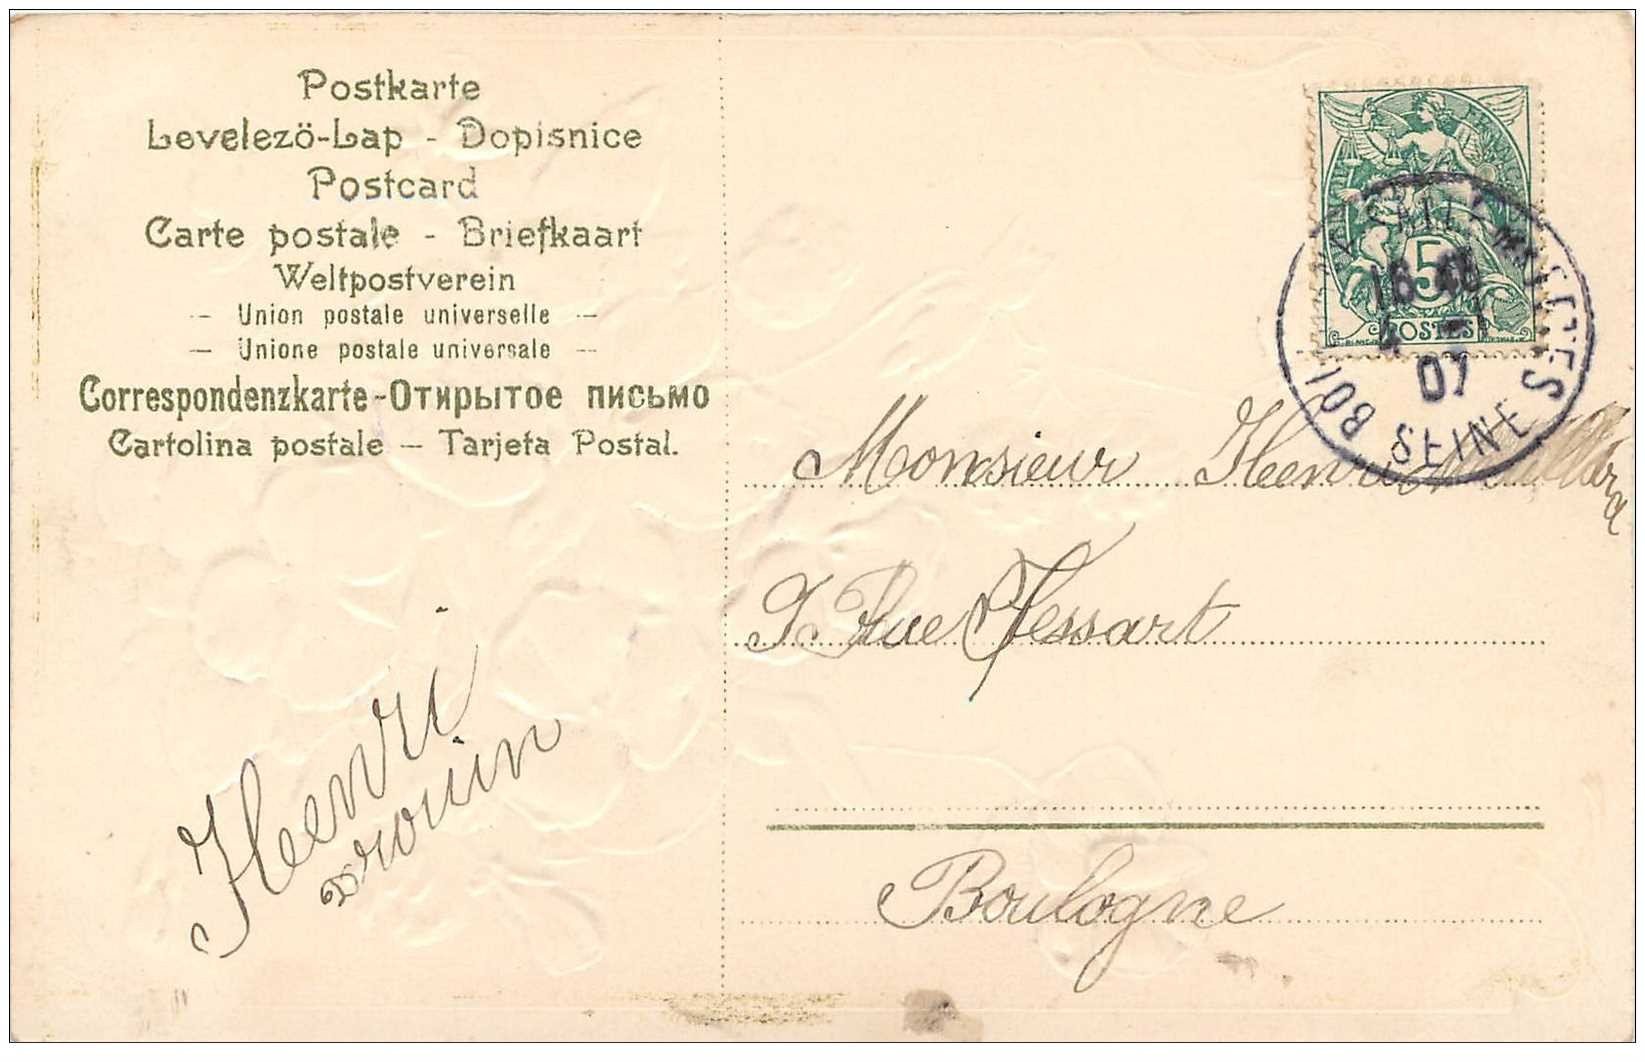 Postkarte
Levelezö-Lap - Dopisnice
Postcard
Carte postale - Briefkaart
Weltpostverein
— Union postale universelle —
— Unione postale universale —
Correspondenzkarte - Открытое письмо
Cartolina postale — Tarjeta Postal.
5
POSTES
16 40
07
SEINE
Monsieur Henri
9 Rue Fessart
Boulogne
Henri
Drouin